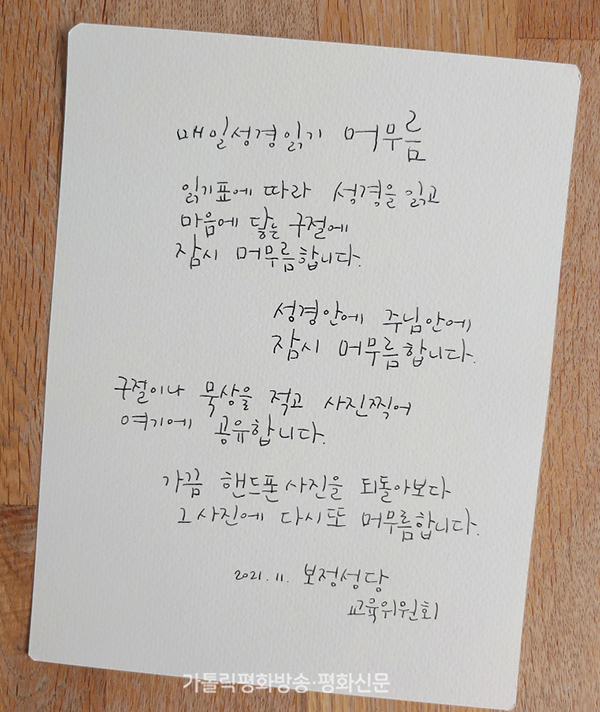 매일성경읽기 머무름
읽기표에 따라 성경을 읽고
마음에 닿는 구절에
잠시 머무름합니다.
성경안에 주님안에
잠시 머무름합니다.
구절이나 묵상을 적고 사진찍어
여기에 공유합니다.
가끔 핸드폰 사진을 되돌아보다
그 사진에 다시 또 머무름합니다.
2021. 11. 보정성당
교육위원회
가톨릭평화방송·평화신문